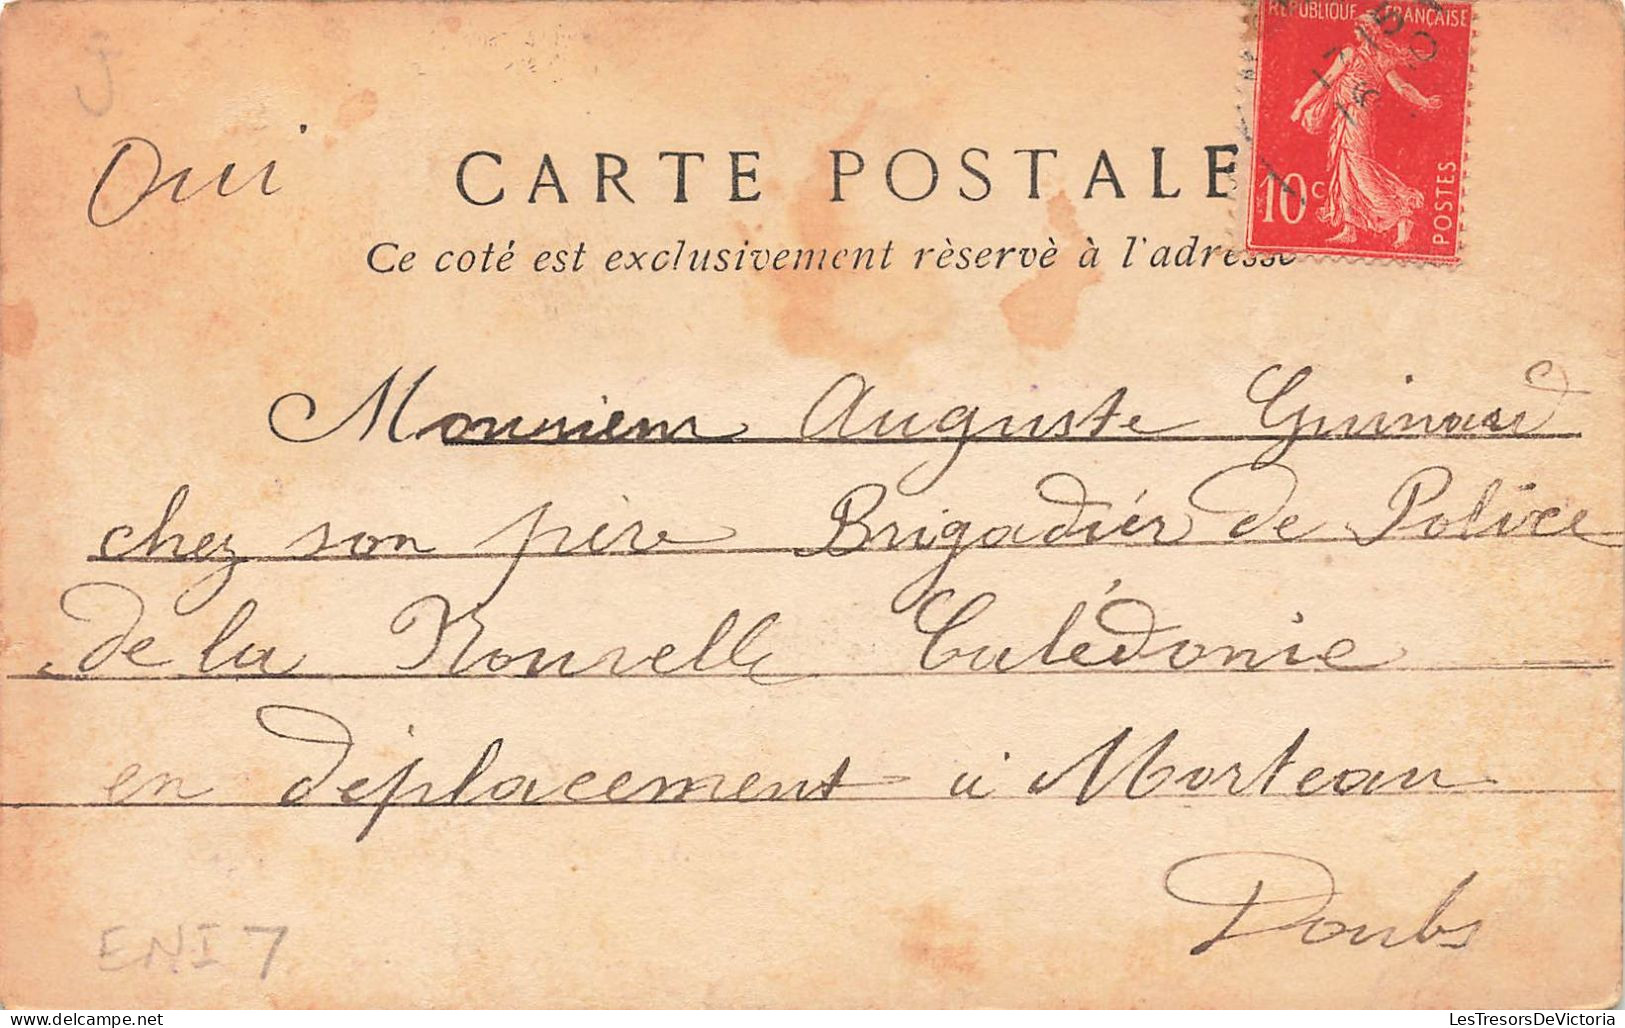 J
RÉPUBLIQUE FRANÇAISE
10c
POSTES
Oui
CARTE POSTALE
Ce coté est exclusivement rèservè à l'adresse
Monsieur Auguste Guinard
chez son père Brigadier de Police
de la Nouvelle Calédonie
en déplacement à Morteau
Doubs
ENI 7
LesTresorsDeVictoria